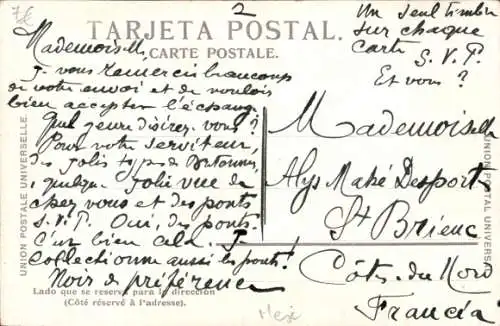 2
TARJETA POSTAL.
CARTE POSTALE.
Un seul timbre
sur chaque
carte S. V. P.
Et vous ?
Mademoiselle,
Je vous remercie beaucoup
de votre envoi et de vouloir
bien accepter l'échange.
Quel genre désirez-vous ?
Pour votre serviteur,
des jolis types de Bretonnes,
quelque jolie vue de
chez vous et des ponts
S.V.P. Oui, des ponts.
C'est bien cela. Je
collectionne aussi les ponts !
Noir de préférence
Mademoiselle
Alys Mahé Desportes
St Brieuc
Côtes-du-Nord
Francia
UNION POSTALE UNIVERSELLE.
UNION POSTAL UNIVERSAL
Lado que se reserva para la dirección
(Côté réservé à l'adresse).